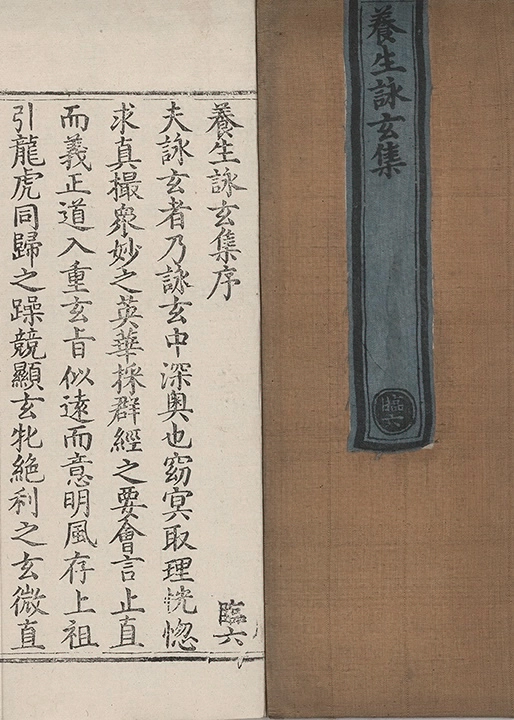 養生詠玄集
臨六
養生詠玄集序
臨六
夫詠玄者乃詠玄中深奧也窈冥取理恍惚
求真撮衆妙之英華採群經之要會言止直
而義正道入重玄㫖似遠而意明風存上祖
引龍虎同歸之躁競顯玄牝絶利之玄微直